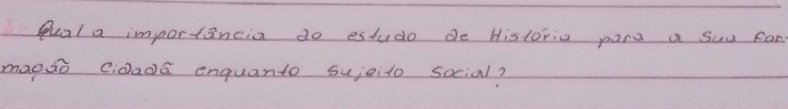 Qual a importância do estudo de História para a sua for-
mação cidadã enquanto sujeito social?